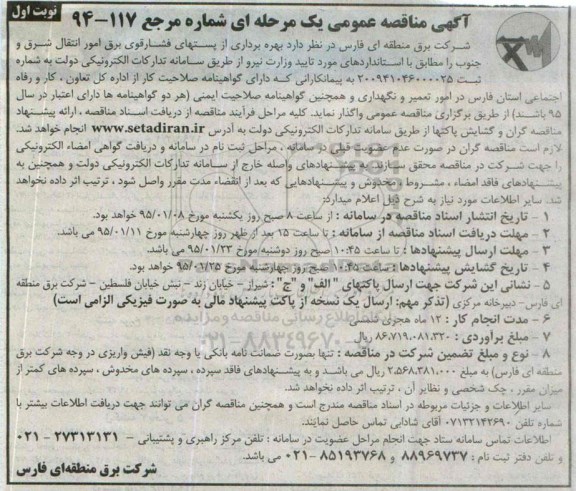 نوبت اول
آگهی مناقصه عمومی یک مرحله ای شماره مرجع ۱۱۷-۹۴
شرکت برق منطقه ای فارس در نظر دارد بهره برداری از پستهای فشارقوی برق امور انتقال شرق و
جنوب را مطابق با استانداردهای مورد تایید وزارت نیرو از طریق سامانه تدارکات الکترونیکی دولت به شماره
ثبت ۲۰۰۹۴۱۰۴۶۰۰۰۰۲۵ به پیمانکارانی که دارای گواهینامه صلاحیت کار از اداره کل تعاون ، کار و رفاه
اجتماعی استان فارس در امور تعمیر و نگهداری و همچنین گواهینامه صلاحیت ایمنی (هر دو گواهینامه ها دارای اعتبار در سال
۹۵ باشند) از طریق برگزاری مناقصه عمومی واگذار نماید. کلیه مراحل فرآیند مناقصه از دریافت اسناد مناقصه ، ارائه پیشنهاد
مناقصه گران و گشایش پاکتها از طریق سامانه تدارکات الکترونیکی دولت به آدرس www.setadiran.ir انجام خواهد شد.
لازم است مناقصه گران در صورت عدم عضویت قبلی در سامانه ، مراحل ثبت نام در سامانه و دریافت گواهی امضاء الکترونیکی
را جهت شرکت در مناقصه محقق سازند. به پیشنهادهای واصله خارج از سامانه تدارکات الکترونیکی دولت و همچنین به
پیشنهادهای فاقد امضاء ، مشروط و مخدوش و پیشنهادهایی که بعد از انقضاء مدت مقرر واصل شود ، ترتیب اثر داده نخواهد
شد. سایر اطلاعات مورد نیاز به شرح ذیل اعلام میدارد:
۱ - تاریخ انتشار اسناد مناقصه در سامانه : از ساعت ۸ صبح روز یکشنبه مورخ ۹۵/۰۱/۰۸ خواهد بود.
۲ - مهلت دریافت اسناد مناقصه از سامانه : تا ساعت ۱۵ بعد از ظهر روز چهارشنبه مورخ ۹۵/۰۱/۱۱ می باشد.
۳ - مهلت ارسال پیشنهادها : تا ساعت ۱۰:۴۵ صبح روز دوشنبه مورخ ۹۵/۰۱/۲۳ می باشد.
۴ - تاریخ گشایش پیشنهادها : ساعت ۱۰:۴۵ صبح روز چهارشنبه مورخ ۹۵/۰۱/۲۵ خواهد بود.
۵ - نشانی این شرکت جهت ارسال پاکتهای "الف" و "ج" : شیراز – خیابان زند – نبش خیابان فلسطین – شرکت برق منطقه
ای فارس- دبیرخانه مرکزی (تذکر مهم: ارسال یک نسخه از پاکت پیشنهاد مالی به صورت فیزیکی الزامی است)
۶ - مدت انجام کار : ۱۲ ماه هجری شمسی
۷ - مبلغ برآوردی : ۸۶,۷۱۹,۰۸۱,۳۲۰ ریال
۸ - نوع و مبلغ تضمین شرکت در مناقصه : تنها بصورت ضمانت نامه بانکی یا وجه نقد (فیش واریزی در وجه شرکت برق
منطقه ای فارس) به مبلغ ۲,۵۶۸,۳۸۱,۰۰۰ ریال می باشد و به پیشنهادهای فاقد سپرده ، سپرده های مخدوش ، سپرده های کمتر از
میزان مقرر ، چک شخصی و نظایر آن ، ترتیب اثر داده نخواهد شد.
سایر اطلاعات و جزئیات مربوطه در اسناد مناقصه مندرج است و همچنین مناقصه گران می توانند جهت دریافت اطلاعات بیشتر با
شماره تلفن ۰۷۱۳۲۱۴۲۶۹۰ آقای شادابی تماس حاصل نمایند.
اطلاعات تماس سامانه ستاد جهت انجام مراحل عضویت در سامانه : تلفن مرکز راهبری و پشتیبانی – ۲۷۳۱۳۱۳۱ -۰۲۱
و تلفن دفتر ثبت نام : ۸۸۹۶۹۷۳۷ و ۸۵۱۹۳۷۶۸-۰۲۱ می باشد.
شرکت برق منطقه‌ای فارس